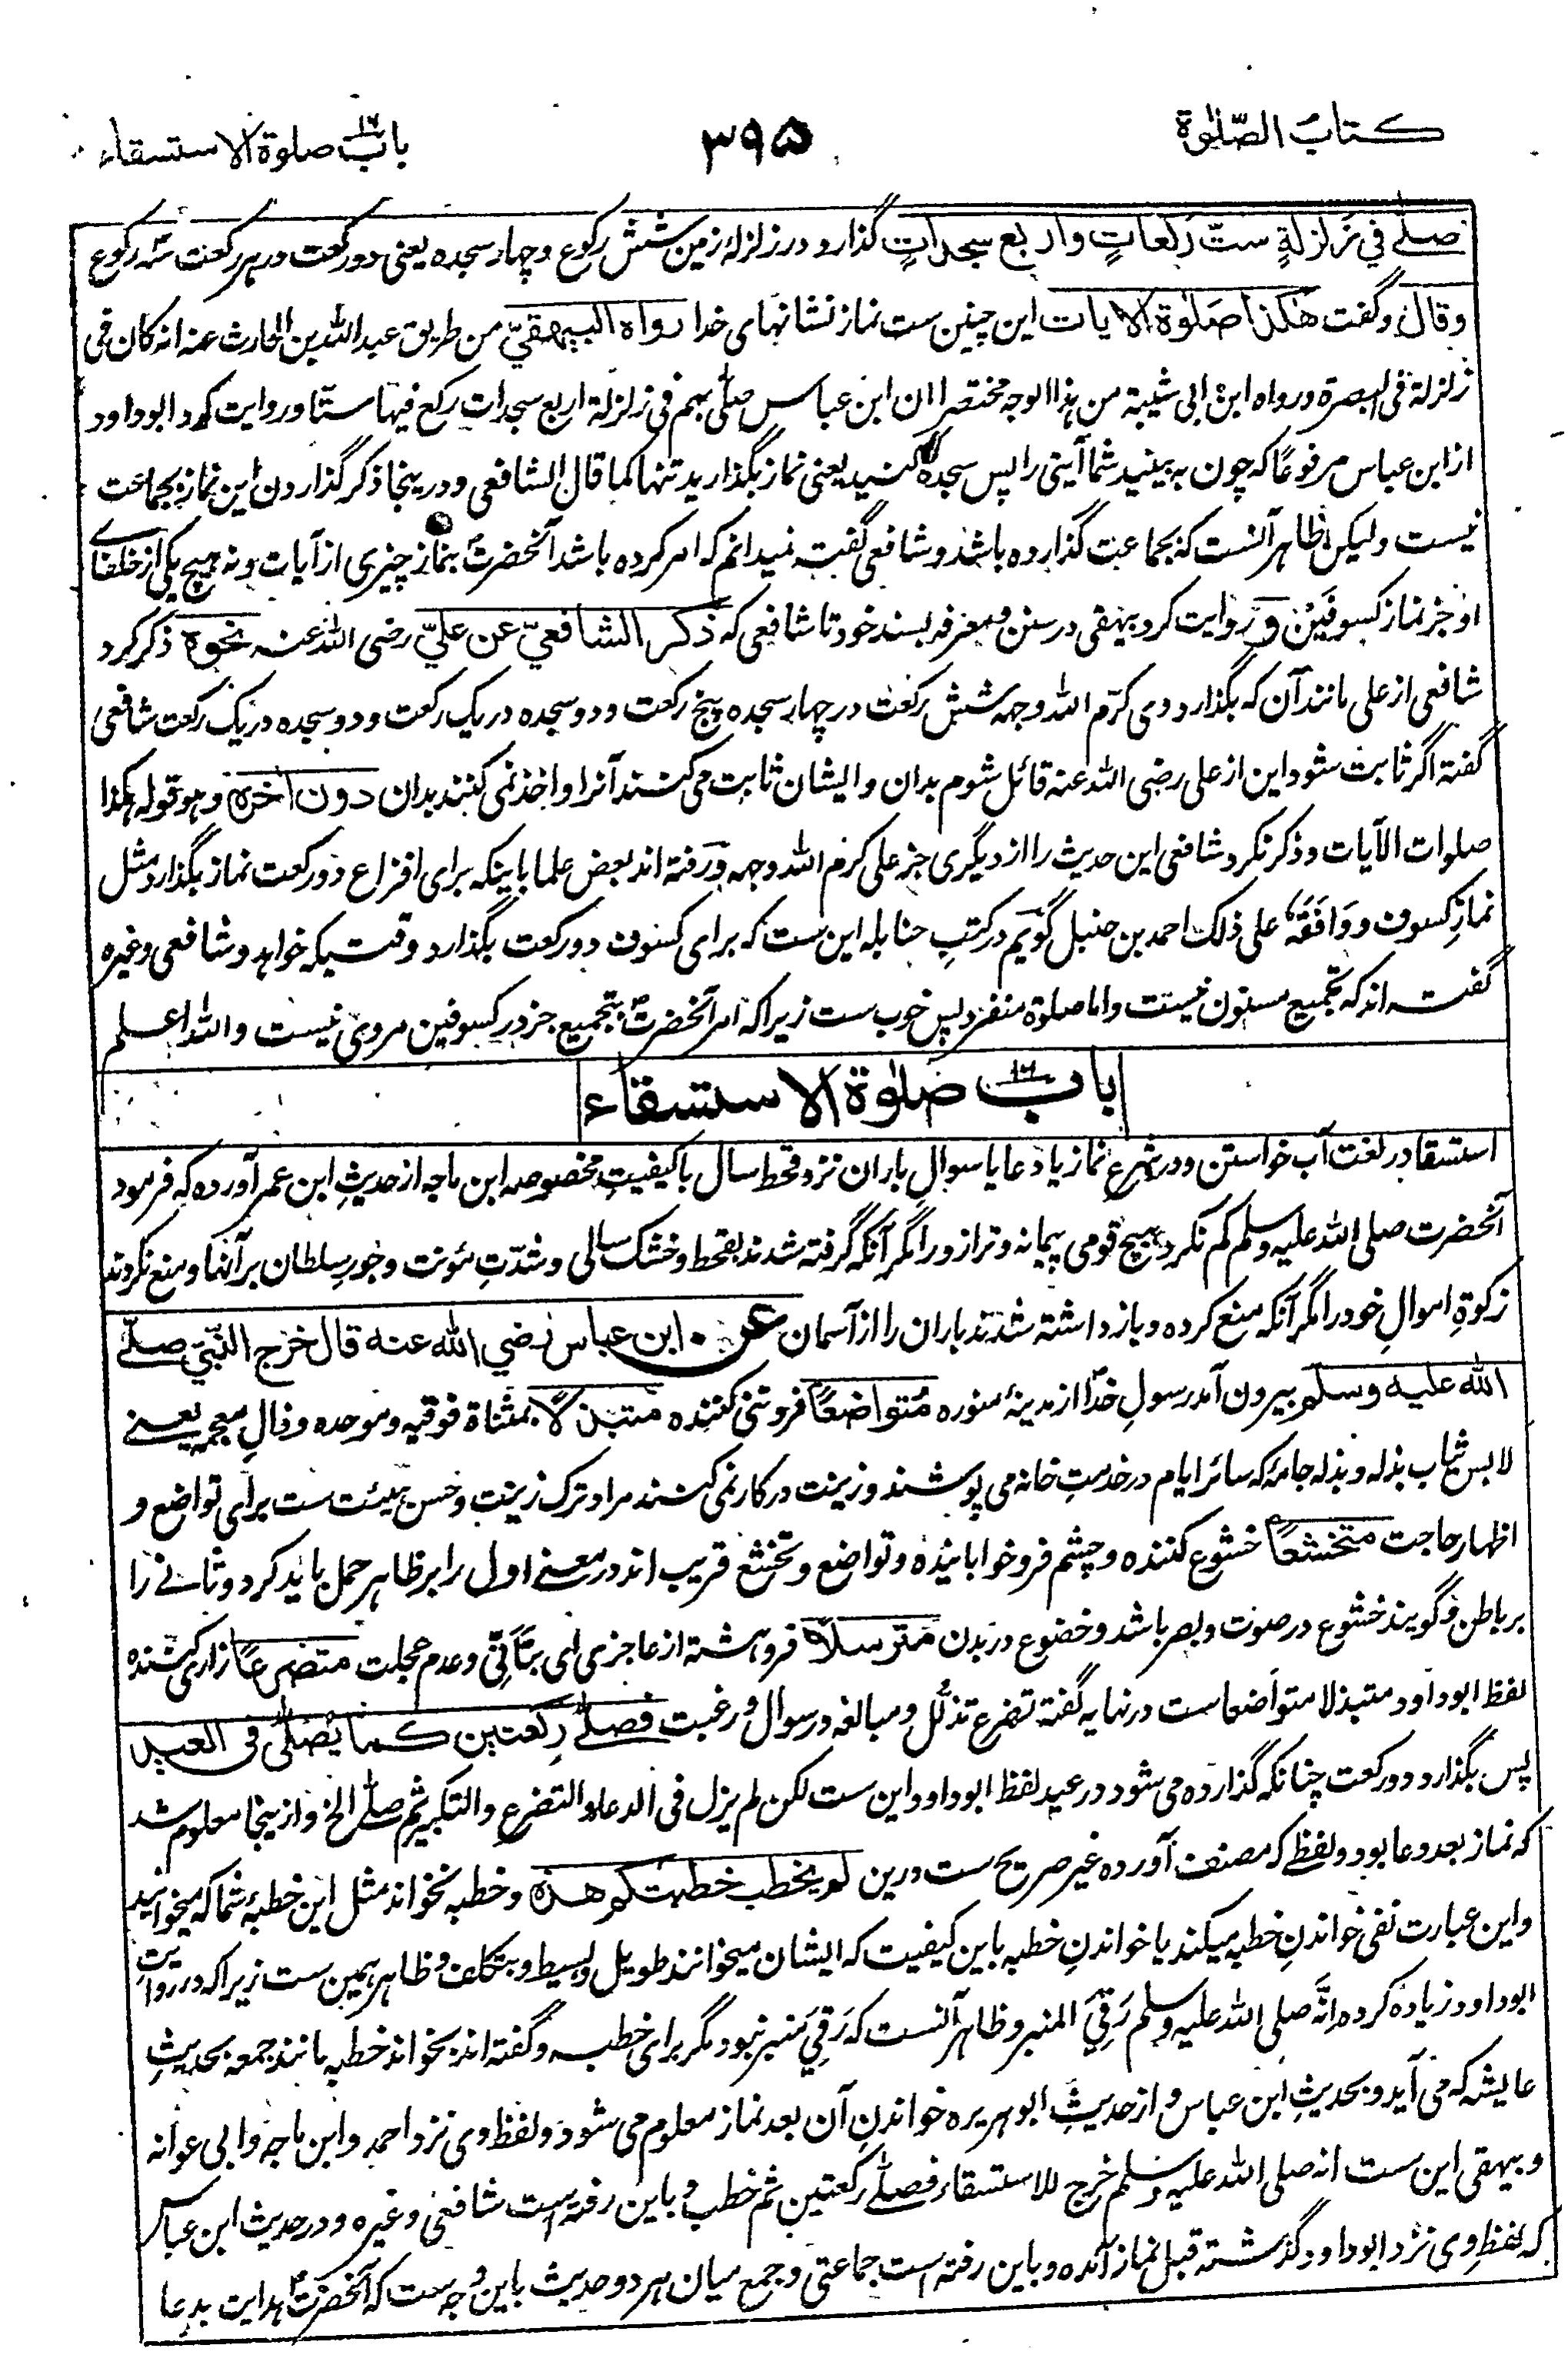 كتاب الصّلٰوة
۳۹۵
باب صلوة الاستسقاء ۱۶
صلے في زلزلةٍ ستّ ركعاتٍ واربع سجداتٍ گذارد در زلزلۂ زمین شش رکوع و چهار سجده یعنی دو رکعت در هر رکعت سه رکوع
وقال و گفت هٰكذا صلٰوة الايات این چنین ست نماز نشانهای خدا رواه البيهقيّ من طریق عبد الله بن الحارث عنه انه كان فی
زلزلة فی البصرة و رواه ابن ابی شیبة من هذا الوجه مختصرا ان ابن عباس صلّٰی بهم فی زلزلة اربع سجدات رکع فیها ستّا و روایت کرد ابوداود
از ابن عباس مرفوعًا که چون به بینید شما آیتی را پس سجده کنید یعنی نماز بگذارید تنها كما قال الشافعی و در ینجا ذکر گذاردن این نماز بجماعت
نیست و لیکن ظاهر آنست که بجماعت گذارده باشد و شافعی گفت نمیدانم که امر کرده باشد آنحضرت بنماز چیزی از آیات و نه هیچ یکی از خلفای
او جز نماز کسوفین و روایت کرد بیهقی در سنن و معرفه بسند خود تا شافعی که ذكر الشافعيّ عن عليّ رضی الله عنہ نحوه ذکر کرد
شافعی از علی مانند آن که بگذارد وی کرّم الله وجهه شش رکعت در چهار سجده پنج رکعت و دو سجده در یک رکعت و دو سجده در یک رکعت شافعی
گفته اگر ثابت شود این از علی رضی الله عنه قائل شوم بدان و ایشان ثابت می کنند آنرا و اخذ نمی کنند بدان دون اخره و هو قوله هكذا
صلوات الآیات و ذکر نکرد شافعی این حدیث را از دیگری جز علی کرم الله وجهه و رفته اند بعض علما باینکه برای افزاع دو رکعت نماز بگذارد مثل
نمازِ کسوف و وَافَقَهُ علی ذلک احمد بن حنبل گویم در کتبِ حنابله این ست که برای کسوف دو رکعت بگذارد وقتیکه خواهد و شافعی وغیره
گفته اند که تجمیع مسنون نیست و اما صلوة منفرد پس خوب ست زیرا که امر آنحضرت بتجمیع جز در کسوفین مروی نیست و الله اعلم
باب ۱۶ صلٰوة الاستسقاء
استسقا در لغت آب خواستن و در شرع نماز یا دعا یا سوالِ باران نزد قحط سال با کیفیتِ مخصوصه ابن ماجه از حدیثِ ابن عمر آورده که فرمود
آنحضرت صلی الله علیه وسلم کم نکرد هیچ قومی پیمانه و ترازو را مگر آنکه گرفته شدند بقحط و خشک سالی و شدّتِ مئونت و جورِ سلطان بر آنها و منع نکردند
زکوةِ اموالِ خود را مگر آنکه منع کرده و باز داشته شدند باران را از آسمان عن ابن عباس رضي الله عنه قال خرج النّبيّ صلے
الله عليه وسلم بیرون آمد رسولِ خدا از مدینۂ منوره مُتواضعًا فروتنی کننده متبذلًا بمثناة فوقیه و موحده و ذالِ معجمه یعنے
لابس ثیاب بذله و بذله جامۂ که سائر ایام در خدمتِ خانه می پوشند و زینت در کار نمی کنند مراد ترک زینت و حسن هیئت ست برای تواضع و
اظهارِ حاجت متخشعًا خشوع کننده و چشم فرو خوابانیده و تواضع و تخشع قریب اند در معنے اول را بر ظاهر حمل باید کرد و ثانے را
بر باطن و گویند خشوع در صوت و بصر باشد و خضوع در بدن مترسلًا فروهشته از عاجزی ای بتأنی و عدم عجلت متضرعًا زاری کننده
لفظ ابوداود متبذلا متواضعا ست در نهایه گفته تضرع تذلّل و مبالغه در سوال و رغبت فصلّے ركعتين كما يُصلّٰى في العيد
پس بگذارد دو رکعت چنانکه گذارده می شود در عید لفظ ابوداود این ست لکن لم یزل فی الدعاء و التضرع و التکبیر ثم صلّی الخ و از ینجا معلوم شد
که نماز بعد دعا بود و لفظے که مصنف آورده غیر صریح ست درین لم يخطب خطبتكم هٰذه و خطبه نخواند مثل این خطبۂ شما که میخوانید
و این عبارت نفی خواندنِ خطبه میکند یا خواندنِ خطبه باین کیفیت که ایشان میخوانند طویل و بسیط و بتکلف و ظاهر همین ست زیرا که در روایتِ
ابوداود زیاده کرده انّه صلی الله علیه وسلم رَقِيَ المنبر و ظاهر آنست که رَقِيِ منبر نبود مگر برای خطبہ و گفته اند بخواند خطبه مانند جمعه بحدیثِ
عایشه که می آید و بحدیثِ ابن عباس و از حدیثِ ابو هریره خواندنِ آن بعد نماز معلوم می شود و لفظ وی نزد احمد و ابن ماجه و ابی عوانه
و بیهقی این ست انه صلی الله علیه وسلم خرج للاستسقاء فصلّے رکعتین ثم خطب و باین رفته است شافعی وغیره و در حدیث ابن عباس
که لفظِ وی نزد ابوداود گذشته قبل نماز آمده و باین رفته است جماعتی و جمع میان هر دو حدیث باین وجه ست که آنحضرت هدایت بدعا